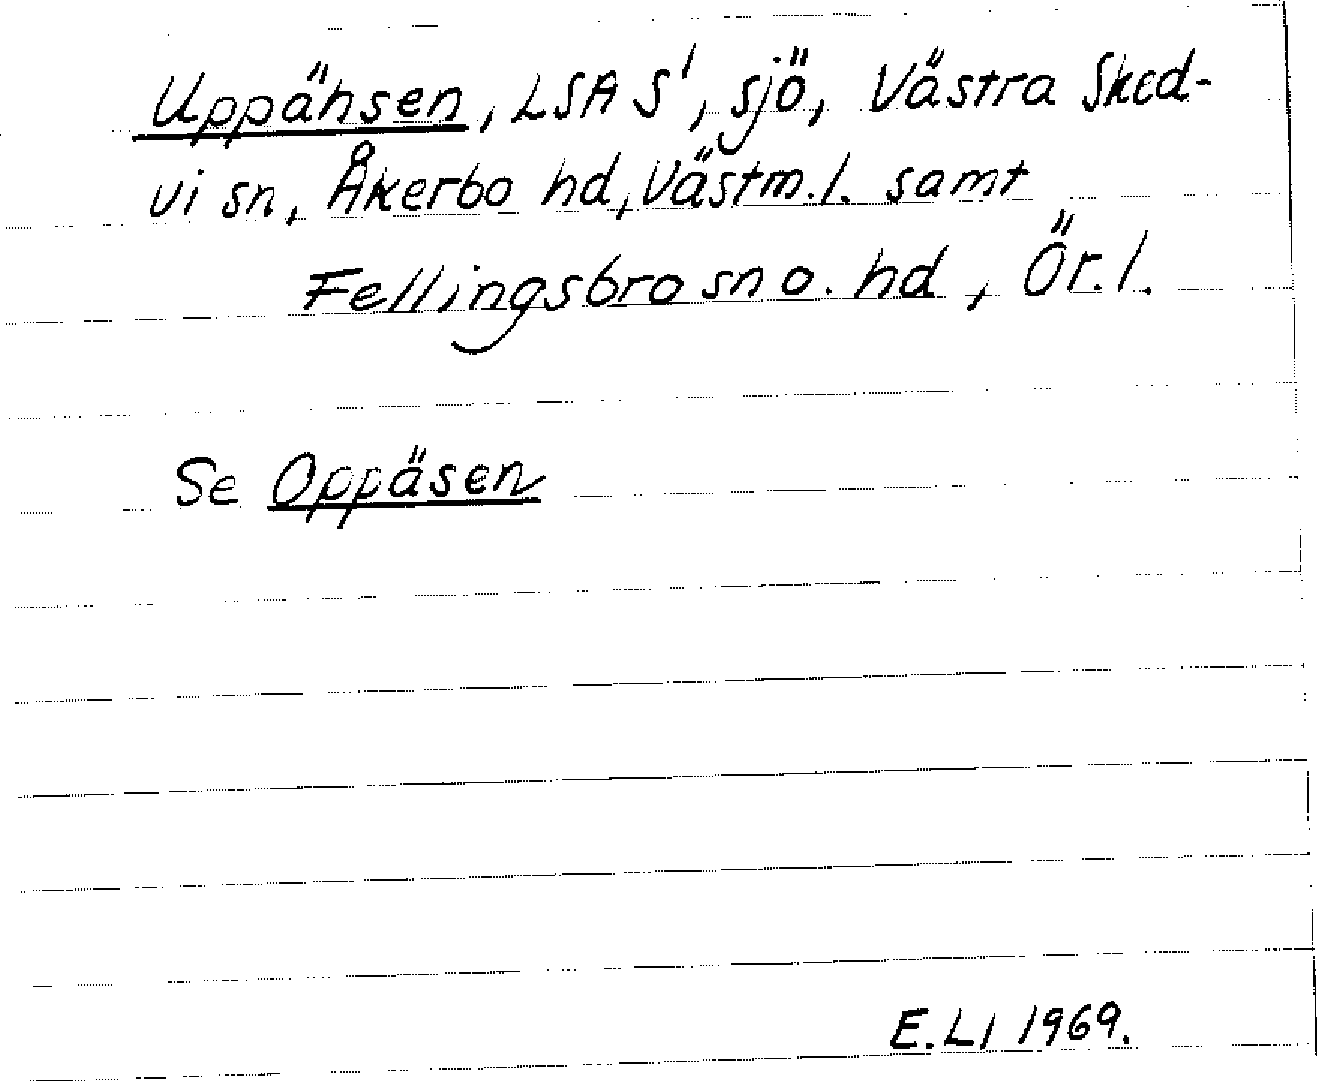 Uppähsen, LSA S¹, sjö, Västra Sked-
vi sn, Åkerbo hd, Västm.l. samt
Fellingsbro sn o. hd, Ör.l.
Se Oppäsen
E.LI 1969.